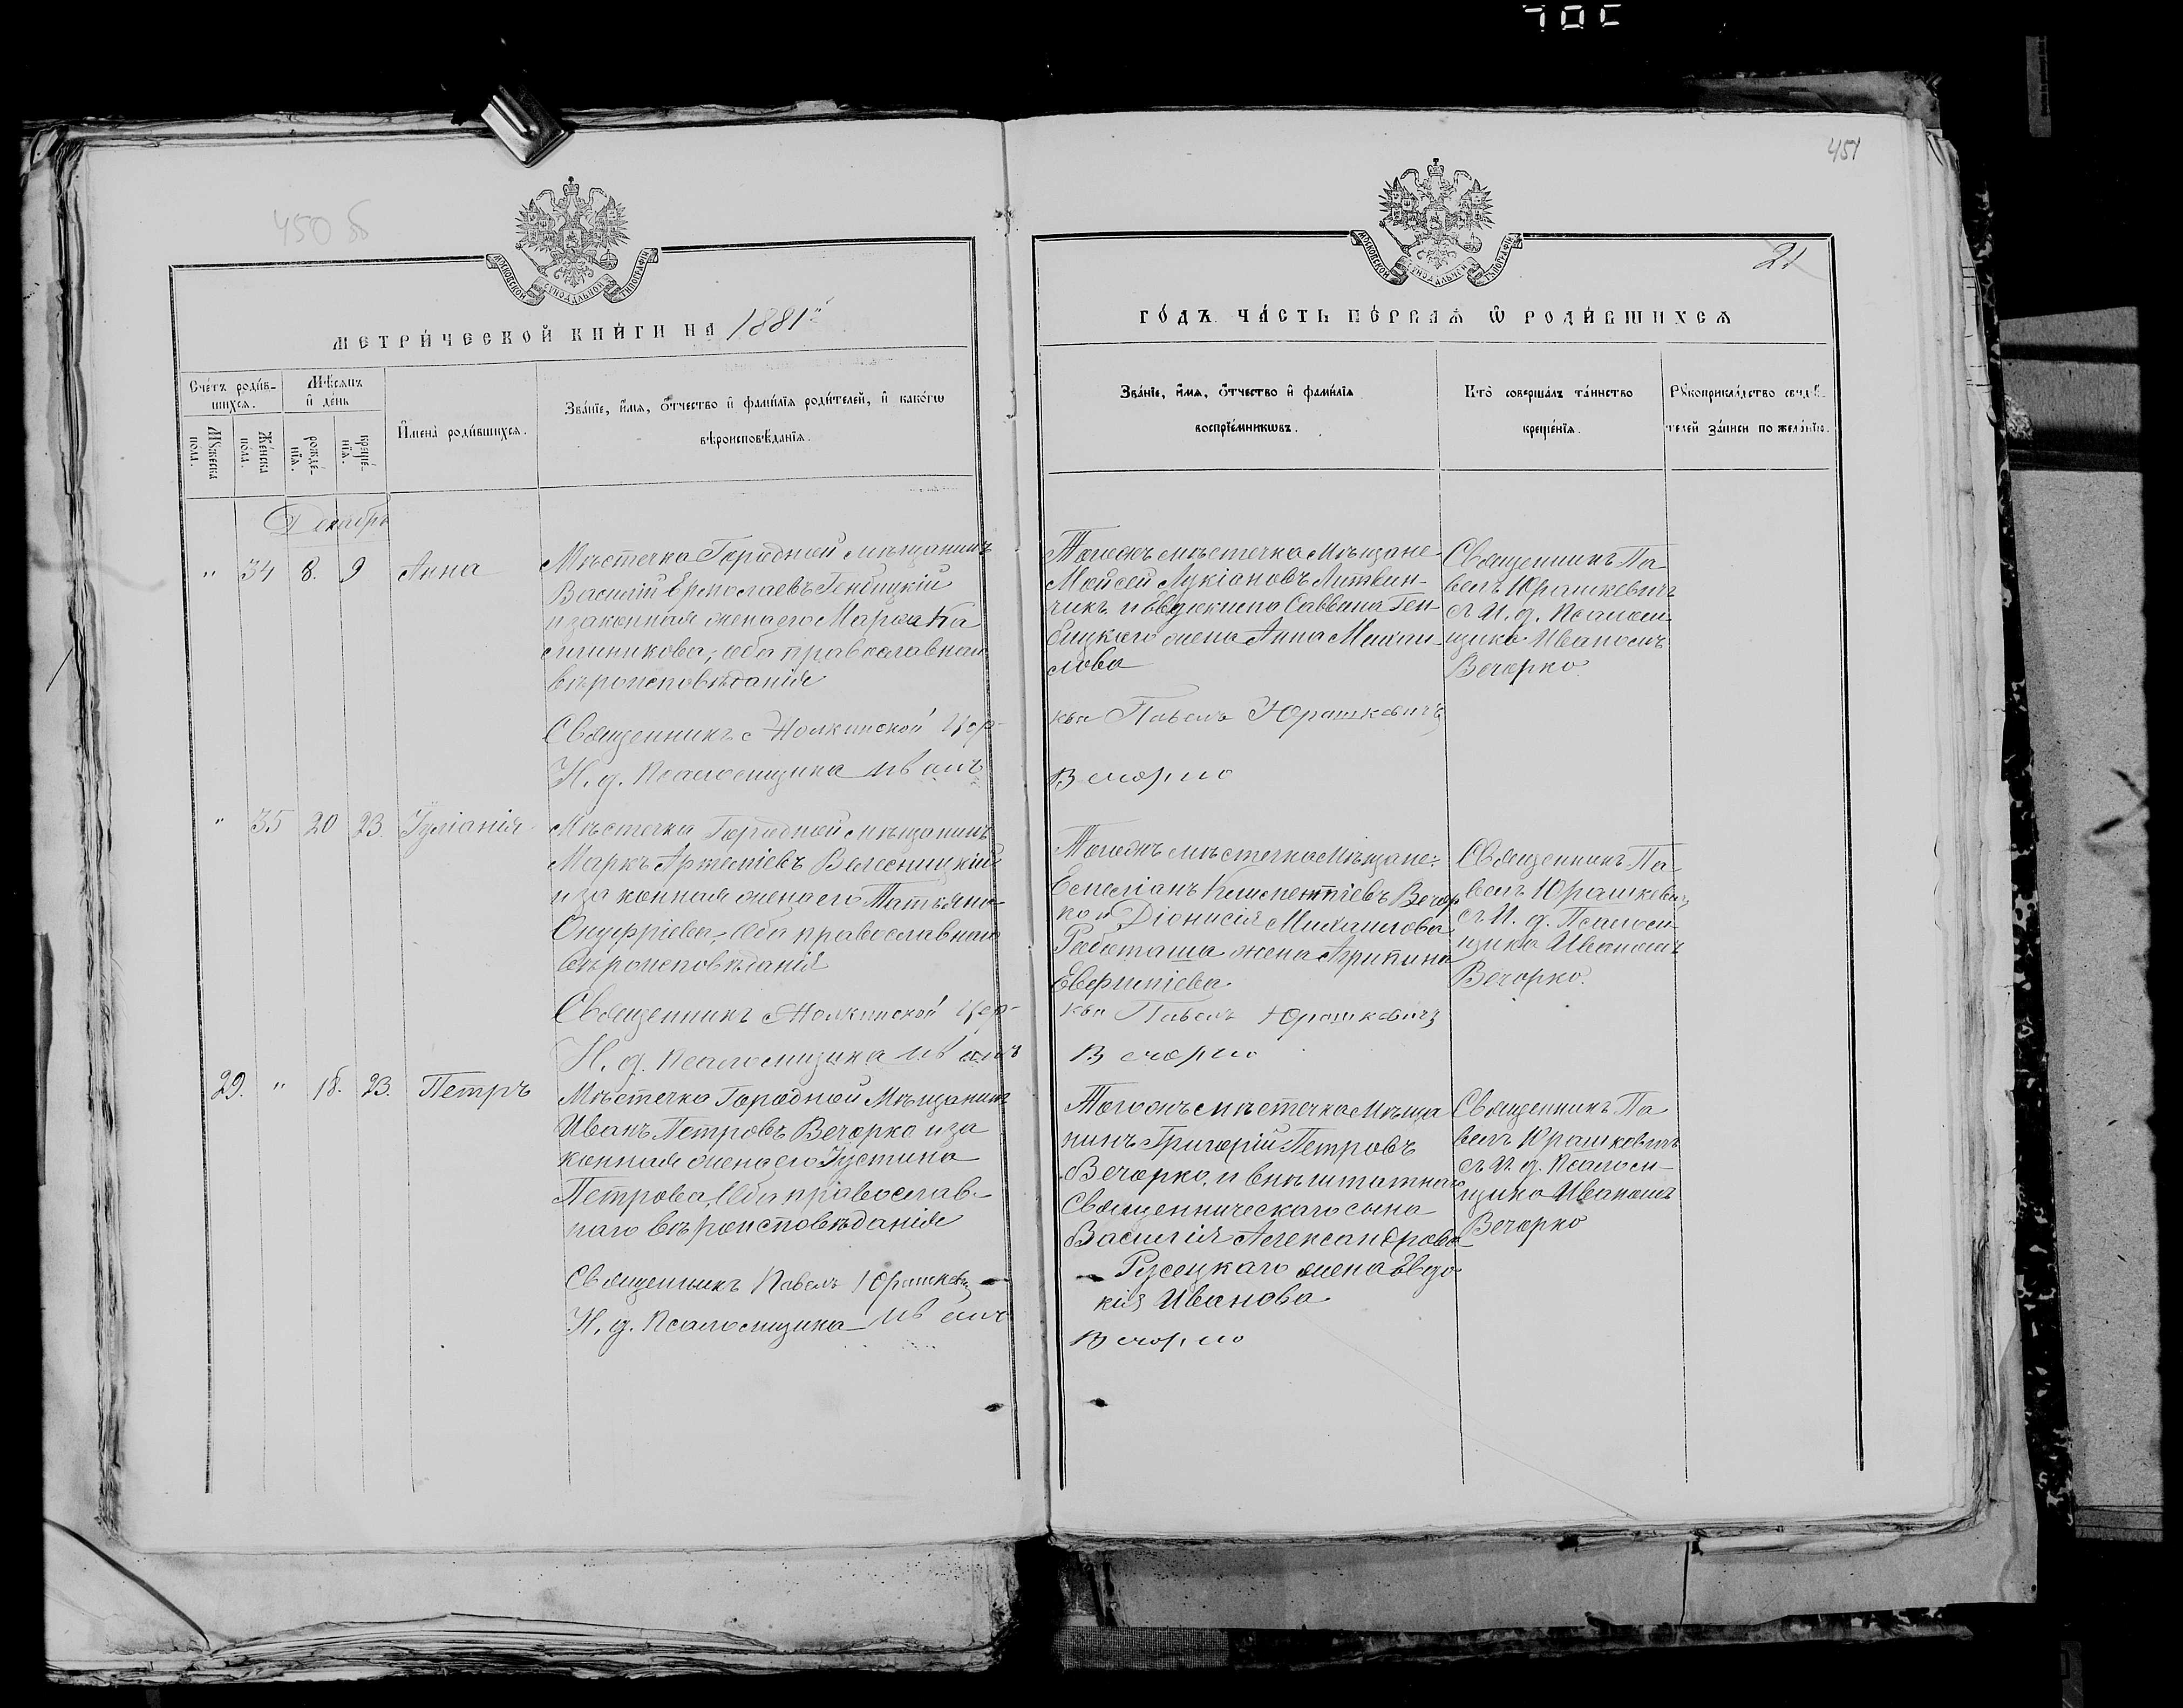 451
450 об
21
МОСКОВСКОЙ СѴНОДАЛЬНОЙ ТИПОГРАФІИ
МОСКОВСКОЙ СѴНОДАЛЬНОЙ ТИПОГРАФІИ
МЕТРИ́ЧЕСКОЙ КНИ́ГИ НА 1881й
ГО́ДЪ ЧА́СТЬ ПЕ́РВАѦ Ѡ РОДИ́ВШИХСѦ
Сче́тъ роди́в-
шихсѧ.
Мѣ́сѧцъ
и҆ де́нь
Мꙋ́жеска
пола.
Же́нска
пола.
рожде́-
нїѧ.
креще́-
нїѧ.
И҆мена̀ роди́вшихсѧ.
Зва́нїе, и҆́мѧ, ѻ҆́тчество и҆ фами́лїѧ роди́телей, и҆ како́гѡ
вѣроисповѣ́данїѧ.
Зва́нїе, и҆́мѧ, ѻ҆́тчество и҆ фами́лїѧ
воспрїе́мникѡвъ.
Кто̀ соверша́лъ та́инство
креще́нїѧ.
Рꙋкоприкла́дство свидѣ́-
телей за́писи по жела́нїю.
Декабрь
" 34 8. 9 Анна
Мѣстечка Городной мѣщанинъ
Василій Ермолаевъ Генбицкій
и законная жена его Марѳа Ка
линикова, оба православнаго
вѣроисповѣданія
Священникъ Цер-
И. д. Псаломщика Иванъ
Тогожъ мѣстечка мѣщане
Мойсей Лукіановъ Литвин-
чикъ и Саввина Ген-
бицкаго жена Анна Михаи-
лова
кви Павелъ Юрашкевичъ
Вечорко
Священникъ Па
велъ Юрашкевичъ
съ И. д. Псалом
щика Иваномъ
Вечорко.
" 35 20 23. Іуліанія
Мѣстечка Городной мѣщанинъ
Маркъ Артеміевъ Велесницкій
и законная жена его Татьяна
Онуфріева, оба православнаго
вѣроисповѣданія
Священникъ Цер-
И. д. Псаломщика Иванъ
Тогожъ мѣстечка мѣщане:
Емеліанъ Климентіевъ Вечор
ко и Діонисія Михаилова
Работаша жена Агрипина
Евфиміева
кви Павелъ Юрашкевичъ
Вечорко
Священникъ Па
велъ Юрашкевичъ
съ И. д. Псалом-
щика Иваномъ
Вечорко.
29. " 18. 23. Петръ
Мѣстечка Городной Мѣщанинъ
Иванъ Петровъ Вечорко и за
конная жена его Іустина
Петрова, Оба православ-
наго вѣроисповѣданія
Священникъ Павелъ Юрашкевичъ
И. д. Псаломщика Иванъ
Тогожъ мѣстечка Мѣща
нинъ Григорій Петровъ
Вечорко, и внѣштатнаго
Священническаго сына
Василія Александрова
жена Евдо
кія Иванова
Вечорко
Священникъ Па
велъ Юрашкевичъ
съ И. д. Псалом-
щика Иваномъ
Вечорко